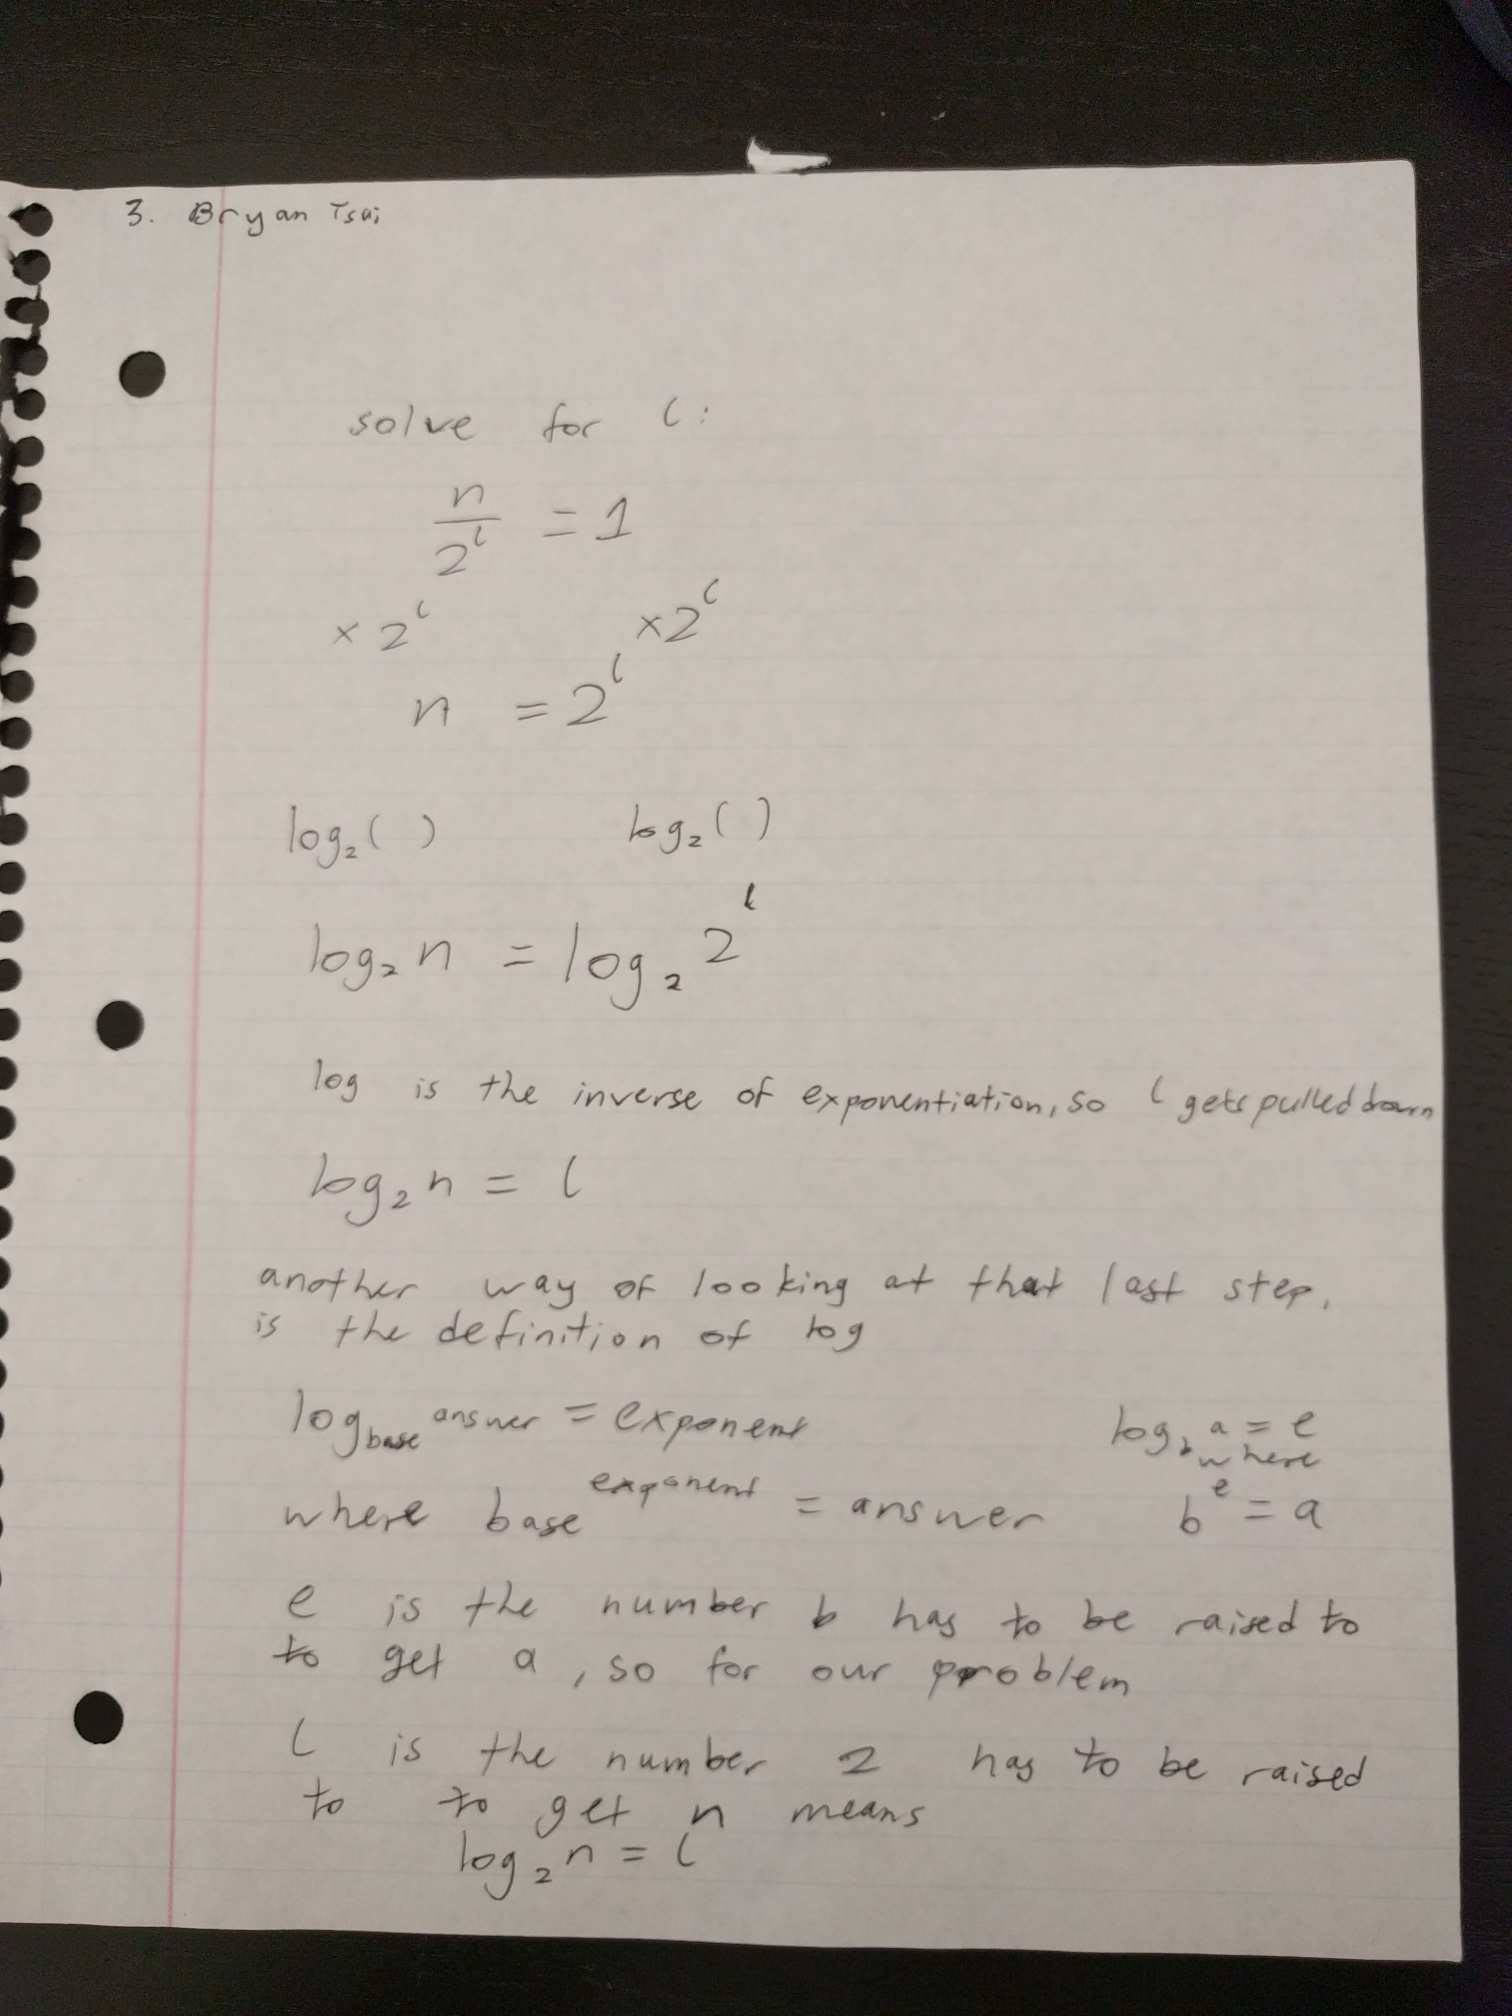 3. Bryan Tsai
solve for l:
n/2^l = 1
× 2^l ×2^l
n = 2^l
log₂( ) log₂( )
log₂ n = log₂ 2^l
log is the inverse of exponentiation, so l gets pulled down
log₂ n = l
another way of looking at that last step,
is the definition of log
log_base answer = exponent log_b a = e
where
where base^exponent = answer b^e = a
e is the number b has to be raised to
to get a, so for our problem
l is the number 2 has to be raised
to to get n means
log₂ n = l